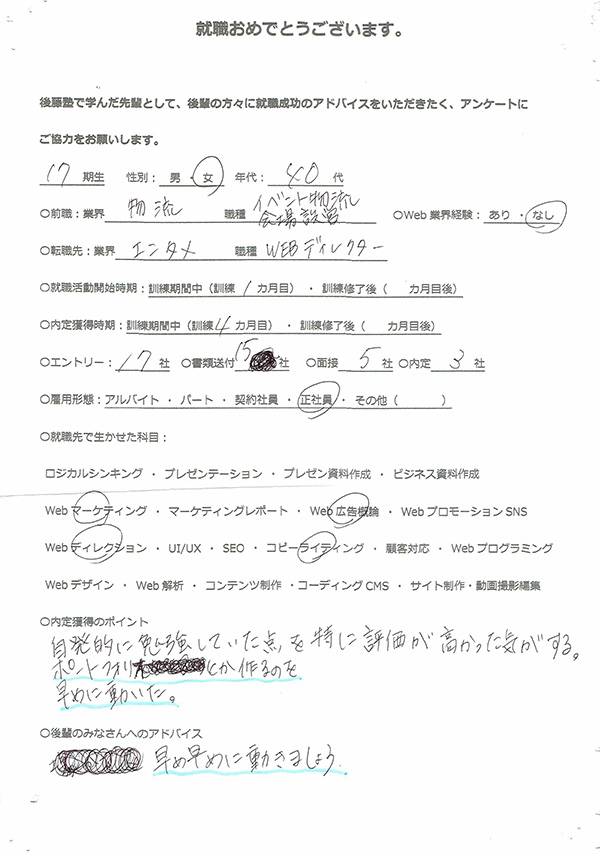 就職おめでとうございます。
後藤塾で学んだ先輩として、後輩の方々に就職成功のアドバイスをいただきたく、アンケートに
ご協力をお願いします。
17 期生 性別: 男 ・ 女 年代: 40 代
○前職:業界 物流 職種 イベント物流 会場設営 ○Web 業界経験: あり ・ なし
○転職先:業界 エンタメ 職種 WEBディレクター
○就職活動開始時期:訓練期間中(訓練 1 カ月目) ・ 訓練修了後( カ月目後)
○内定獲得時期:訓練期間中(訓練 4 カ月目) ・ 訓練修了後( カ月目後)
○エントリー: 17 社 ○書類送付 15 社 ○面接 5 社 ○内定 3 社
○雇用形態:アルバイト ・ パート ・ 契約社員 ・ 正社員 ・ その他( )
○就職先で生かせた科目:
ロジカルシンキング ・ プレゼンテーション ・ プレゼン資料作成 ・ ビジネス資料作成
Web マーケティング ・ マーケティングレポート ・ Web 広告概論 ・ Web プロモーション SNS
Web ディレクション ・ UI/UX ・ SEO ・ コピーライティング ・ 顧客対応 ・ Web プログラミング
Web デザイン ・ Web 解析 ・ コンテンツ制作 ・コーディング CMS ・ サイト制作・動画撮影編集
○内定獲得のポイント
自発的に勉強していた点を特に評価が高かった気がする。
ポートフォリ とか作るのを
早めに動いた。
○後輩のみなさんへのアドバイス
早め早めに動きましょう.